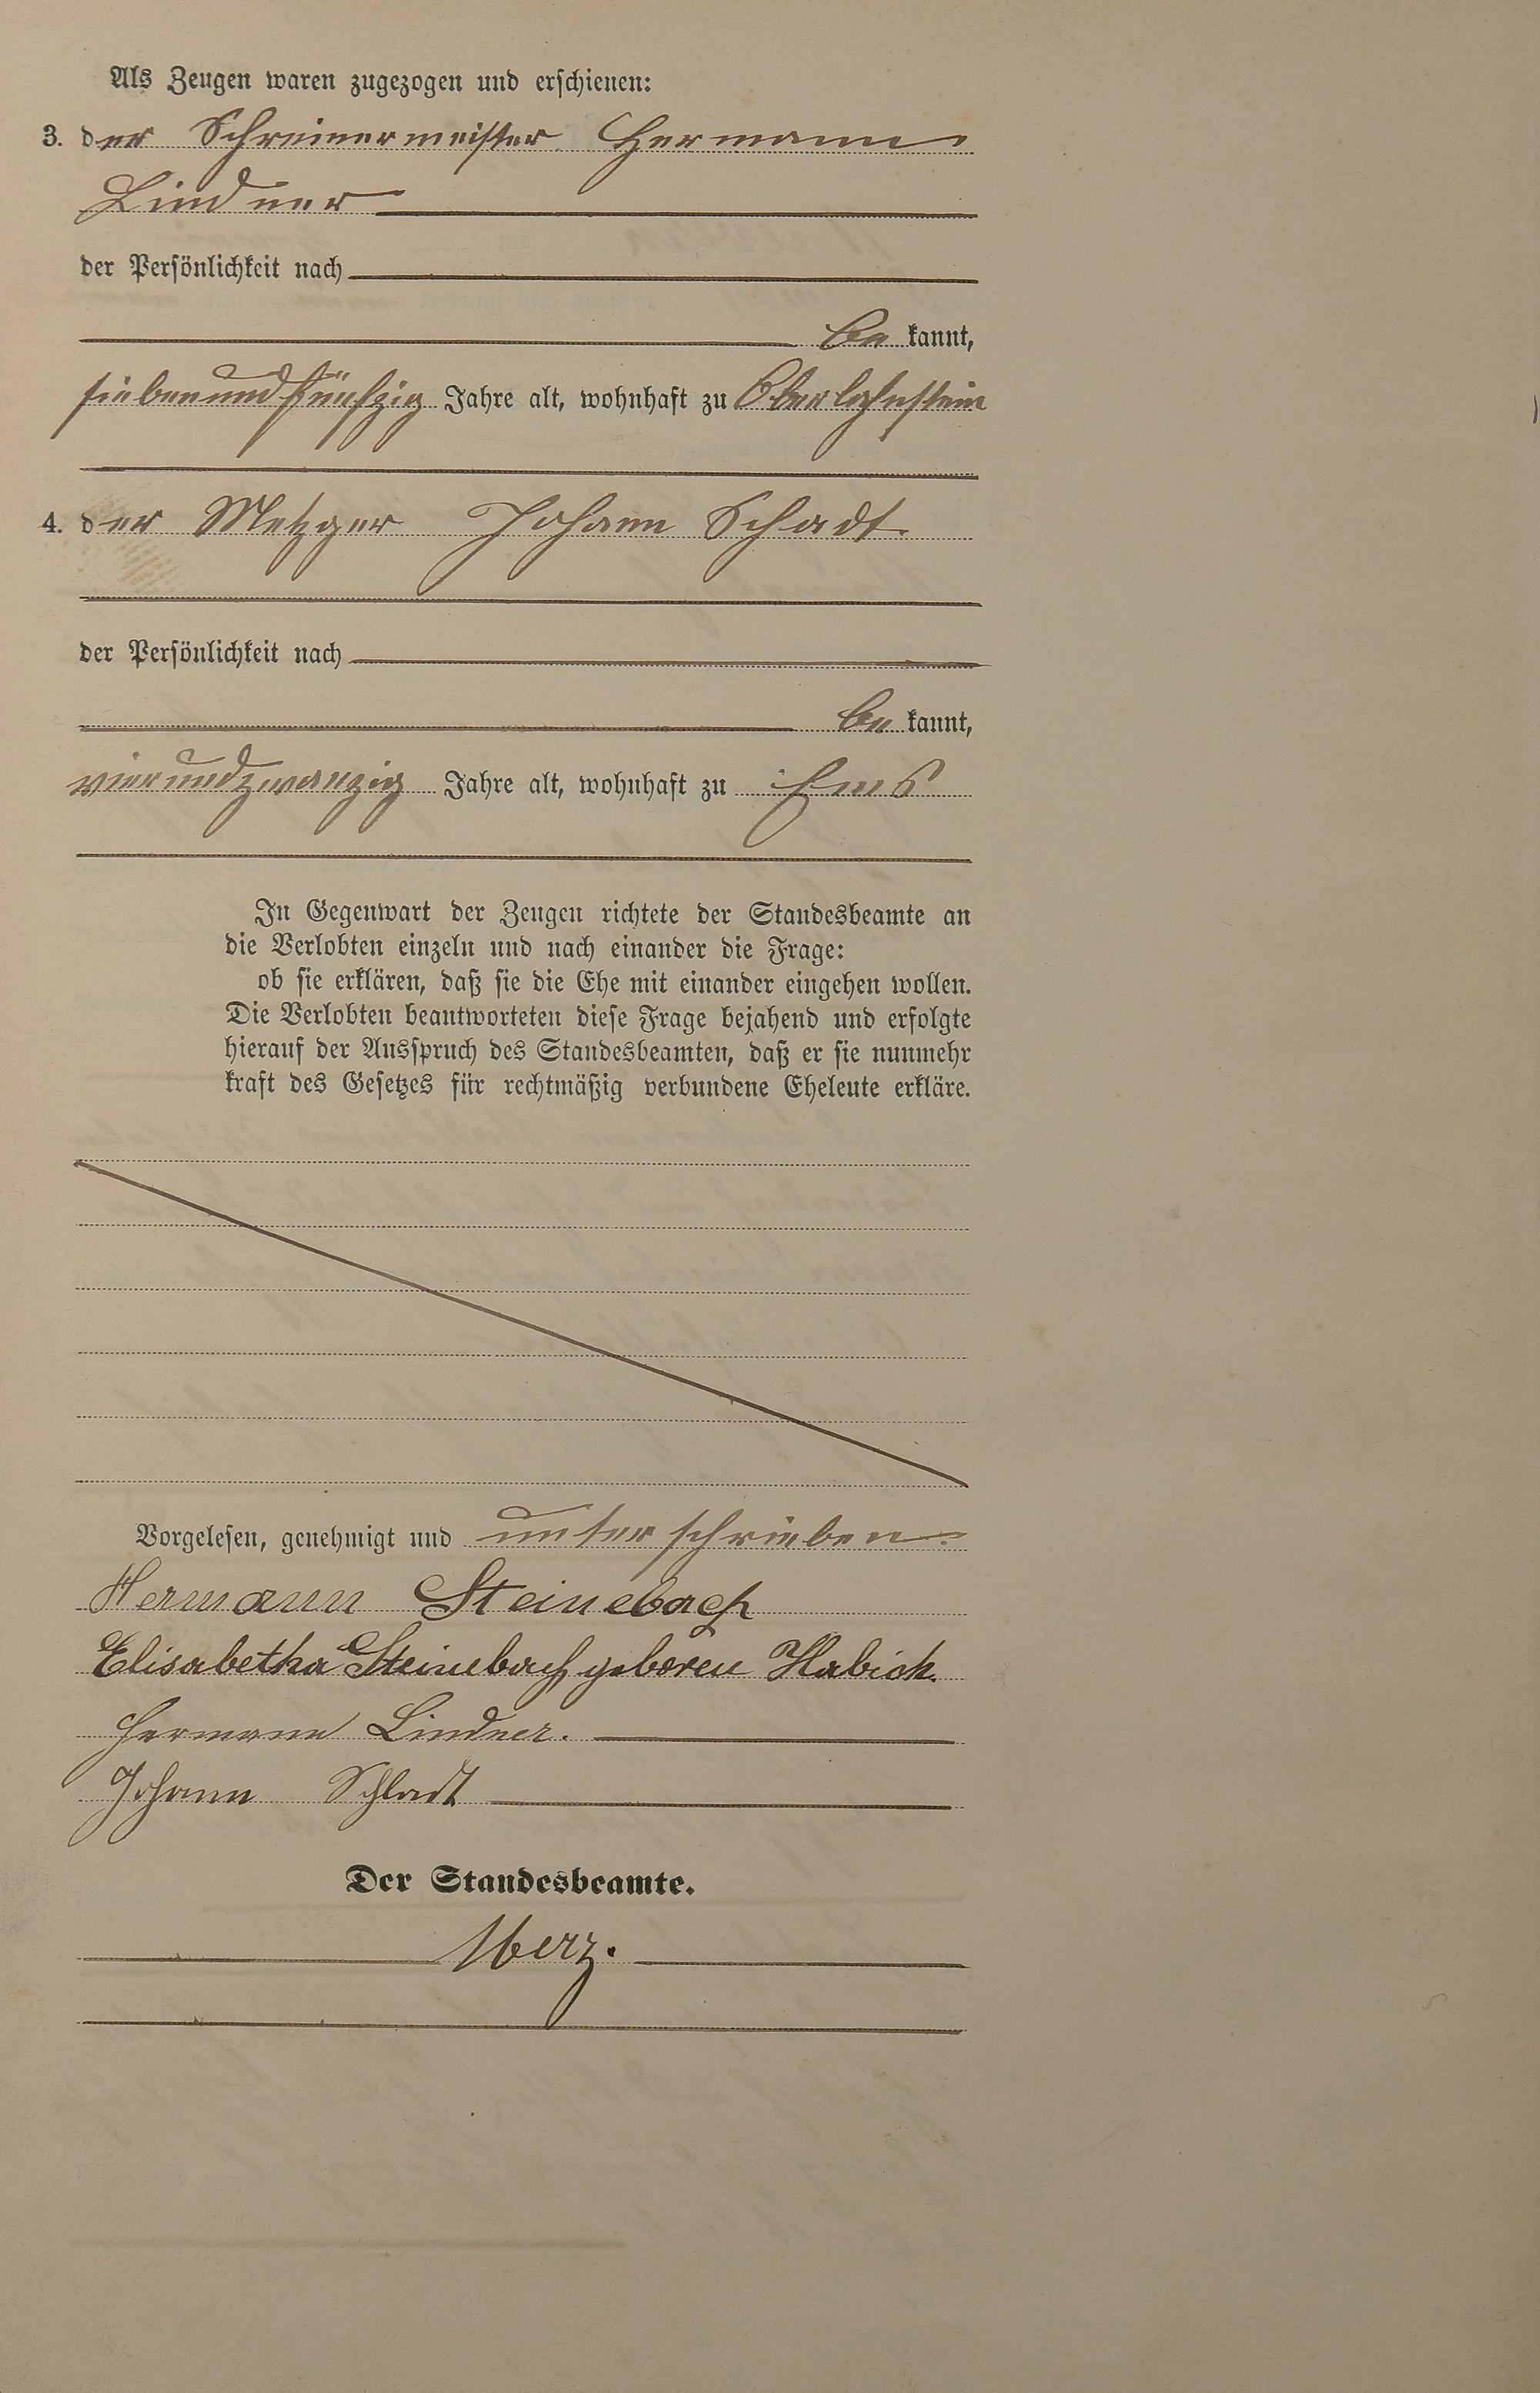 Als Zeugen waren zugezogen und erschienen:
3. der Schreinermeister Hermann
Lindner
der Persönlichkeit nach
be kannt,
siebenundfünfzig Jahre alt, wohnhaft zu Oberlahnstein
4. der Metzger Johann Schadt
der Persönlichkeit nach
be kannt,
vierundzwanzig Jahre alt, wohnhaft zu Ems
In Gegenwart der Zeugen richtete der Standesbeamte an
die Verlobten einzeln und nach einander die Frage:
ob sie erklären, daß sie die Ehe mit einander eingehen wollen.
Die Verlobten beantworteten diese Frage bejahend und erfolgte
hierauf der Ausspruch des Standesbeamten, daß er sie nunmehr
kraft des Gesetzes für rechtmäßig verbundene Eheleute erkläre.
Vorgelesen, genehmigt und unterschrieben.
Hermann Steinebach
Elisabetha Steinebach geboren Habich.
Hermann Lindner.
Johann Schladt
Der Standesbeamte.
Merz.